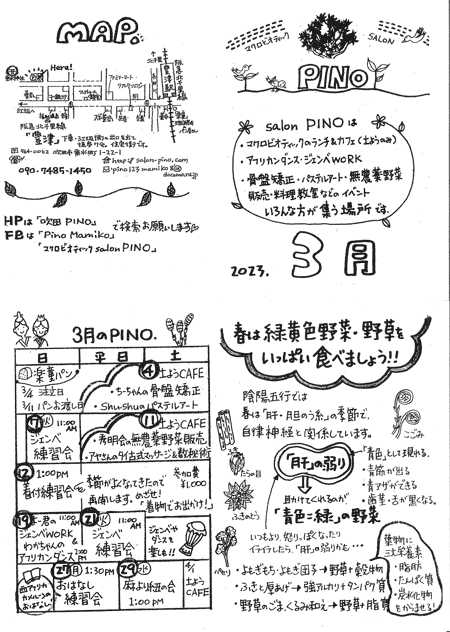 MAP.
Here!
阪急北千里線
「豊津」下車
〒564-0062 吹田市垂水町1-22-1
http://salon-pino.com
090-7485-1450
pino123mamiko@docomo.ne.jp
HPは「吹田PINO」
FBは「Pino Mamiko」
「マクロビオティックsalon PINO」
で検索お願いします
マクロビオティック
SALON
PINO
salon PINOは
・マクロビオティックのランチ&カフェ(土ようのみ)
・アフリカンダンス・ジェンベWORK
・骨盤矯正・パステルアート・無農薬野菜
販売・料理教室などのイベント
いろんな方が集う場所です。
2023.
3月
3月のPINO.
日 平日 土
①楽童パン
3/4 注文日
3/11 パンお渡し日
④土ようCAFE
・ちーちゃんの骨盤矯正
・Shu-shuaパステルアート
⑪土ようCAFE
11:00AM
ジェンベ
練習会
・寿明会の無農薬野菜販売
・アヤさんのタイ古式マッサージ&数秘術
⑫ 1:00PM
着付練習会を
季節がよくなってきたので
再開します。めざせ!
着物でお出かけ!
参加費
¥1,000
⑲
11:00AM
ジェンベWORK
わかちゃんの
アフリカンダンス 2:00PM
㉑火 11:00AM
ジェンベ
練習会
ジェンベや
ダンスを
楽しも!!
㉗月 1:30PM
おはなし
練習会
㉙水
麻より紐の会
1:00PM
4/1
土よう
CAFE
春は緑黄色野菜・野草を
いっぱい食べましょう!!
陰陽五行では
春は「肝・胆のう系」の季節で、
自律神経と関係しています。
こごみ
たらの目
ふきのとう
「肝」の弱り
「青色」として現れる。
・青筋が出る
・青アザができる
・歯茎・舌が黒くなる。
助けてくれるのが
「青色=緑」の野菜
いつもより、怒りっぽくなったり
イライラしたら、「肝」の弱りかも…
・よもぎもち・よもぎ団子→野草+穀物
・ふきと厚あげ→強アルカリ+タンパク質
・野草のごま、くるみ和え→野草+脂質
葉物に
三大栄養素
・脂肪
・たんぱく質
・炭水化物
をからませる!